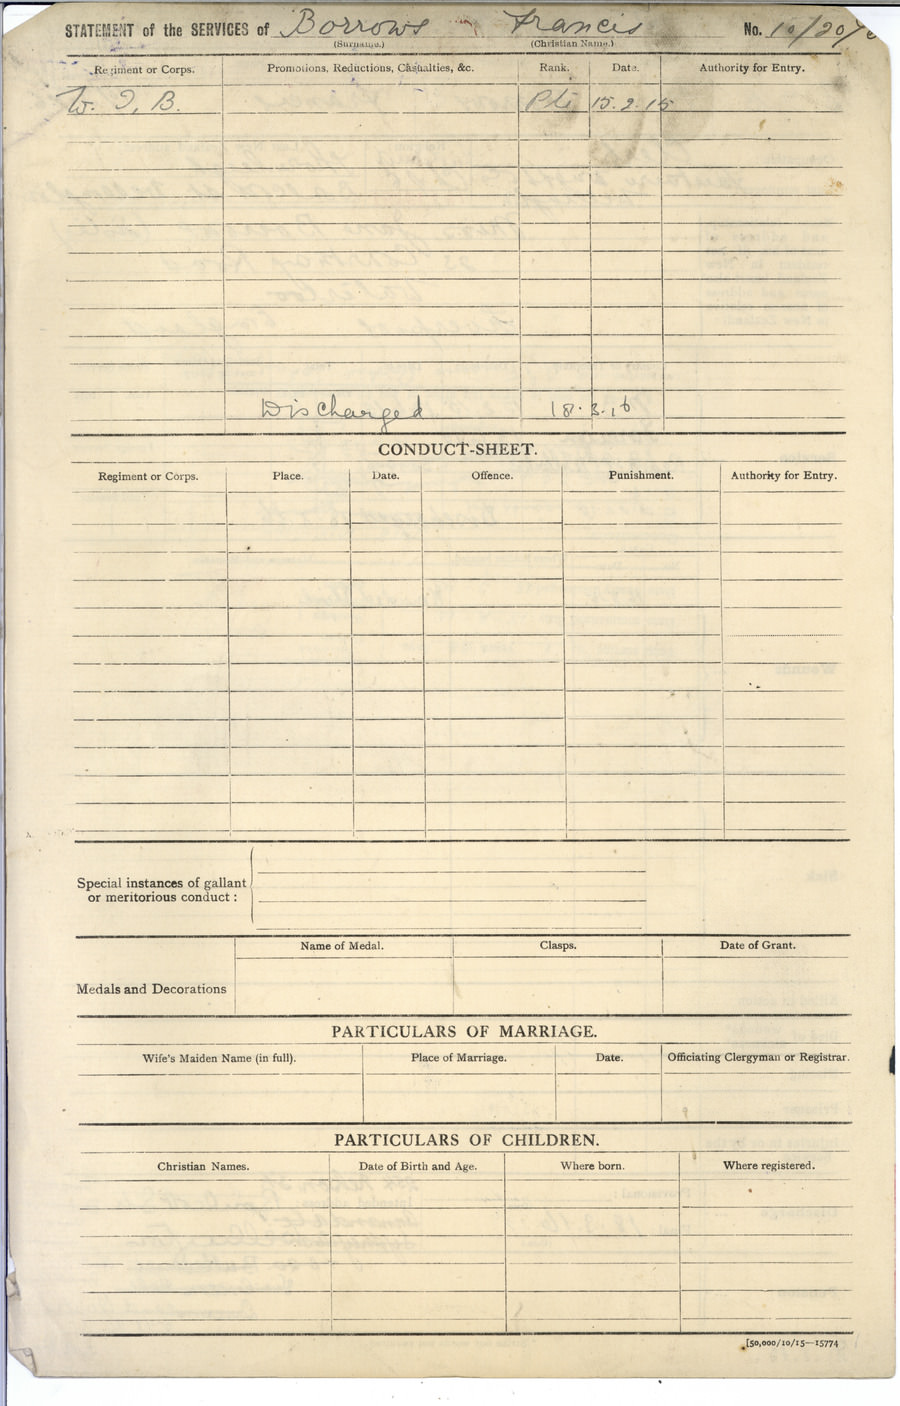 STATEMENT of the SERVICES of Borrows Francis No. 10/20
(Surname.) (Christian Name.)
Regiment or Corps. Promotions, Reductions, Casualties, &c. Rank. Date. Authority for Entry.
W. I. B. Pte 15.2.15
Discharged 18.3.16
CONDUCT-SHEET.
Regiment or Corps. Place. Date. Offence. Punishment. Authority for Entry.
Special instances of gallant
or meritorious conduct :
Name of Medal. Clasps. Date of Grant.
Medals and Decorations
PARTICULARS OF MARRIAGE.
Wife's Maiden Name (in full). Place of Marriage. Date. Officiating Clergyman or Registrar.
PARTICULARS OF CHILDREN.
Christian Names. Date of Birth and Age. Where born. Where registered.
[50,000/10/15—15774